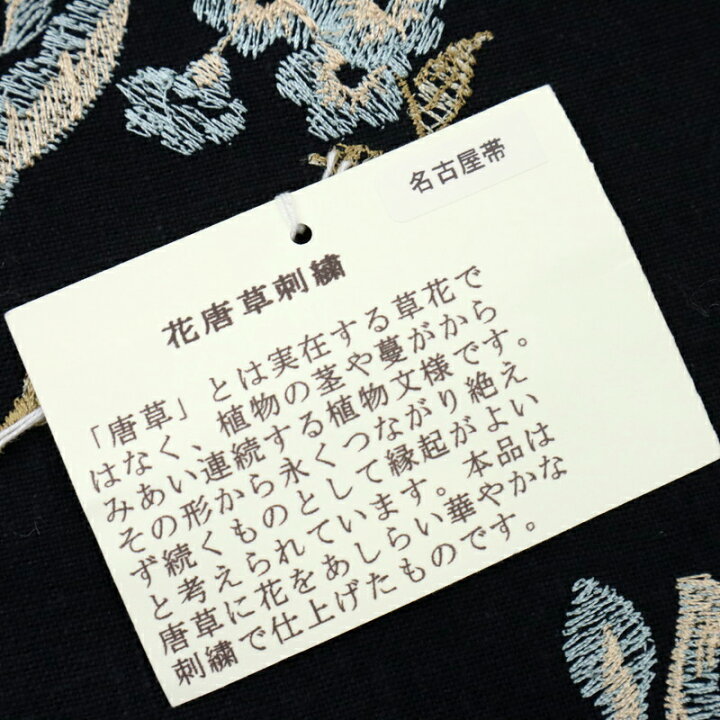 名古屋帯
花唐草刺繍
「唐草」とは実在する草花で
はなく、植物の茎や蔓がから
みあい連続する植物文様です。
その形から永くつながり絶え
ず続くものとして縁起がよい
と考えられています。本品は
唐草に花をあしらい華やかな
刺繍で仕上げたものです。